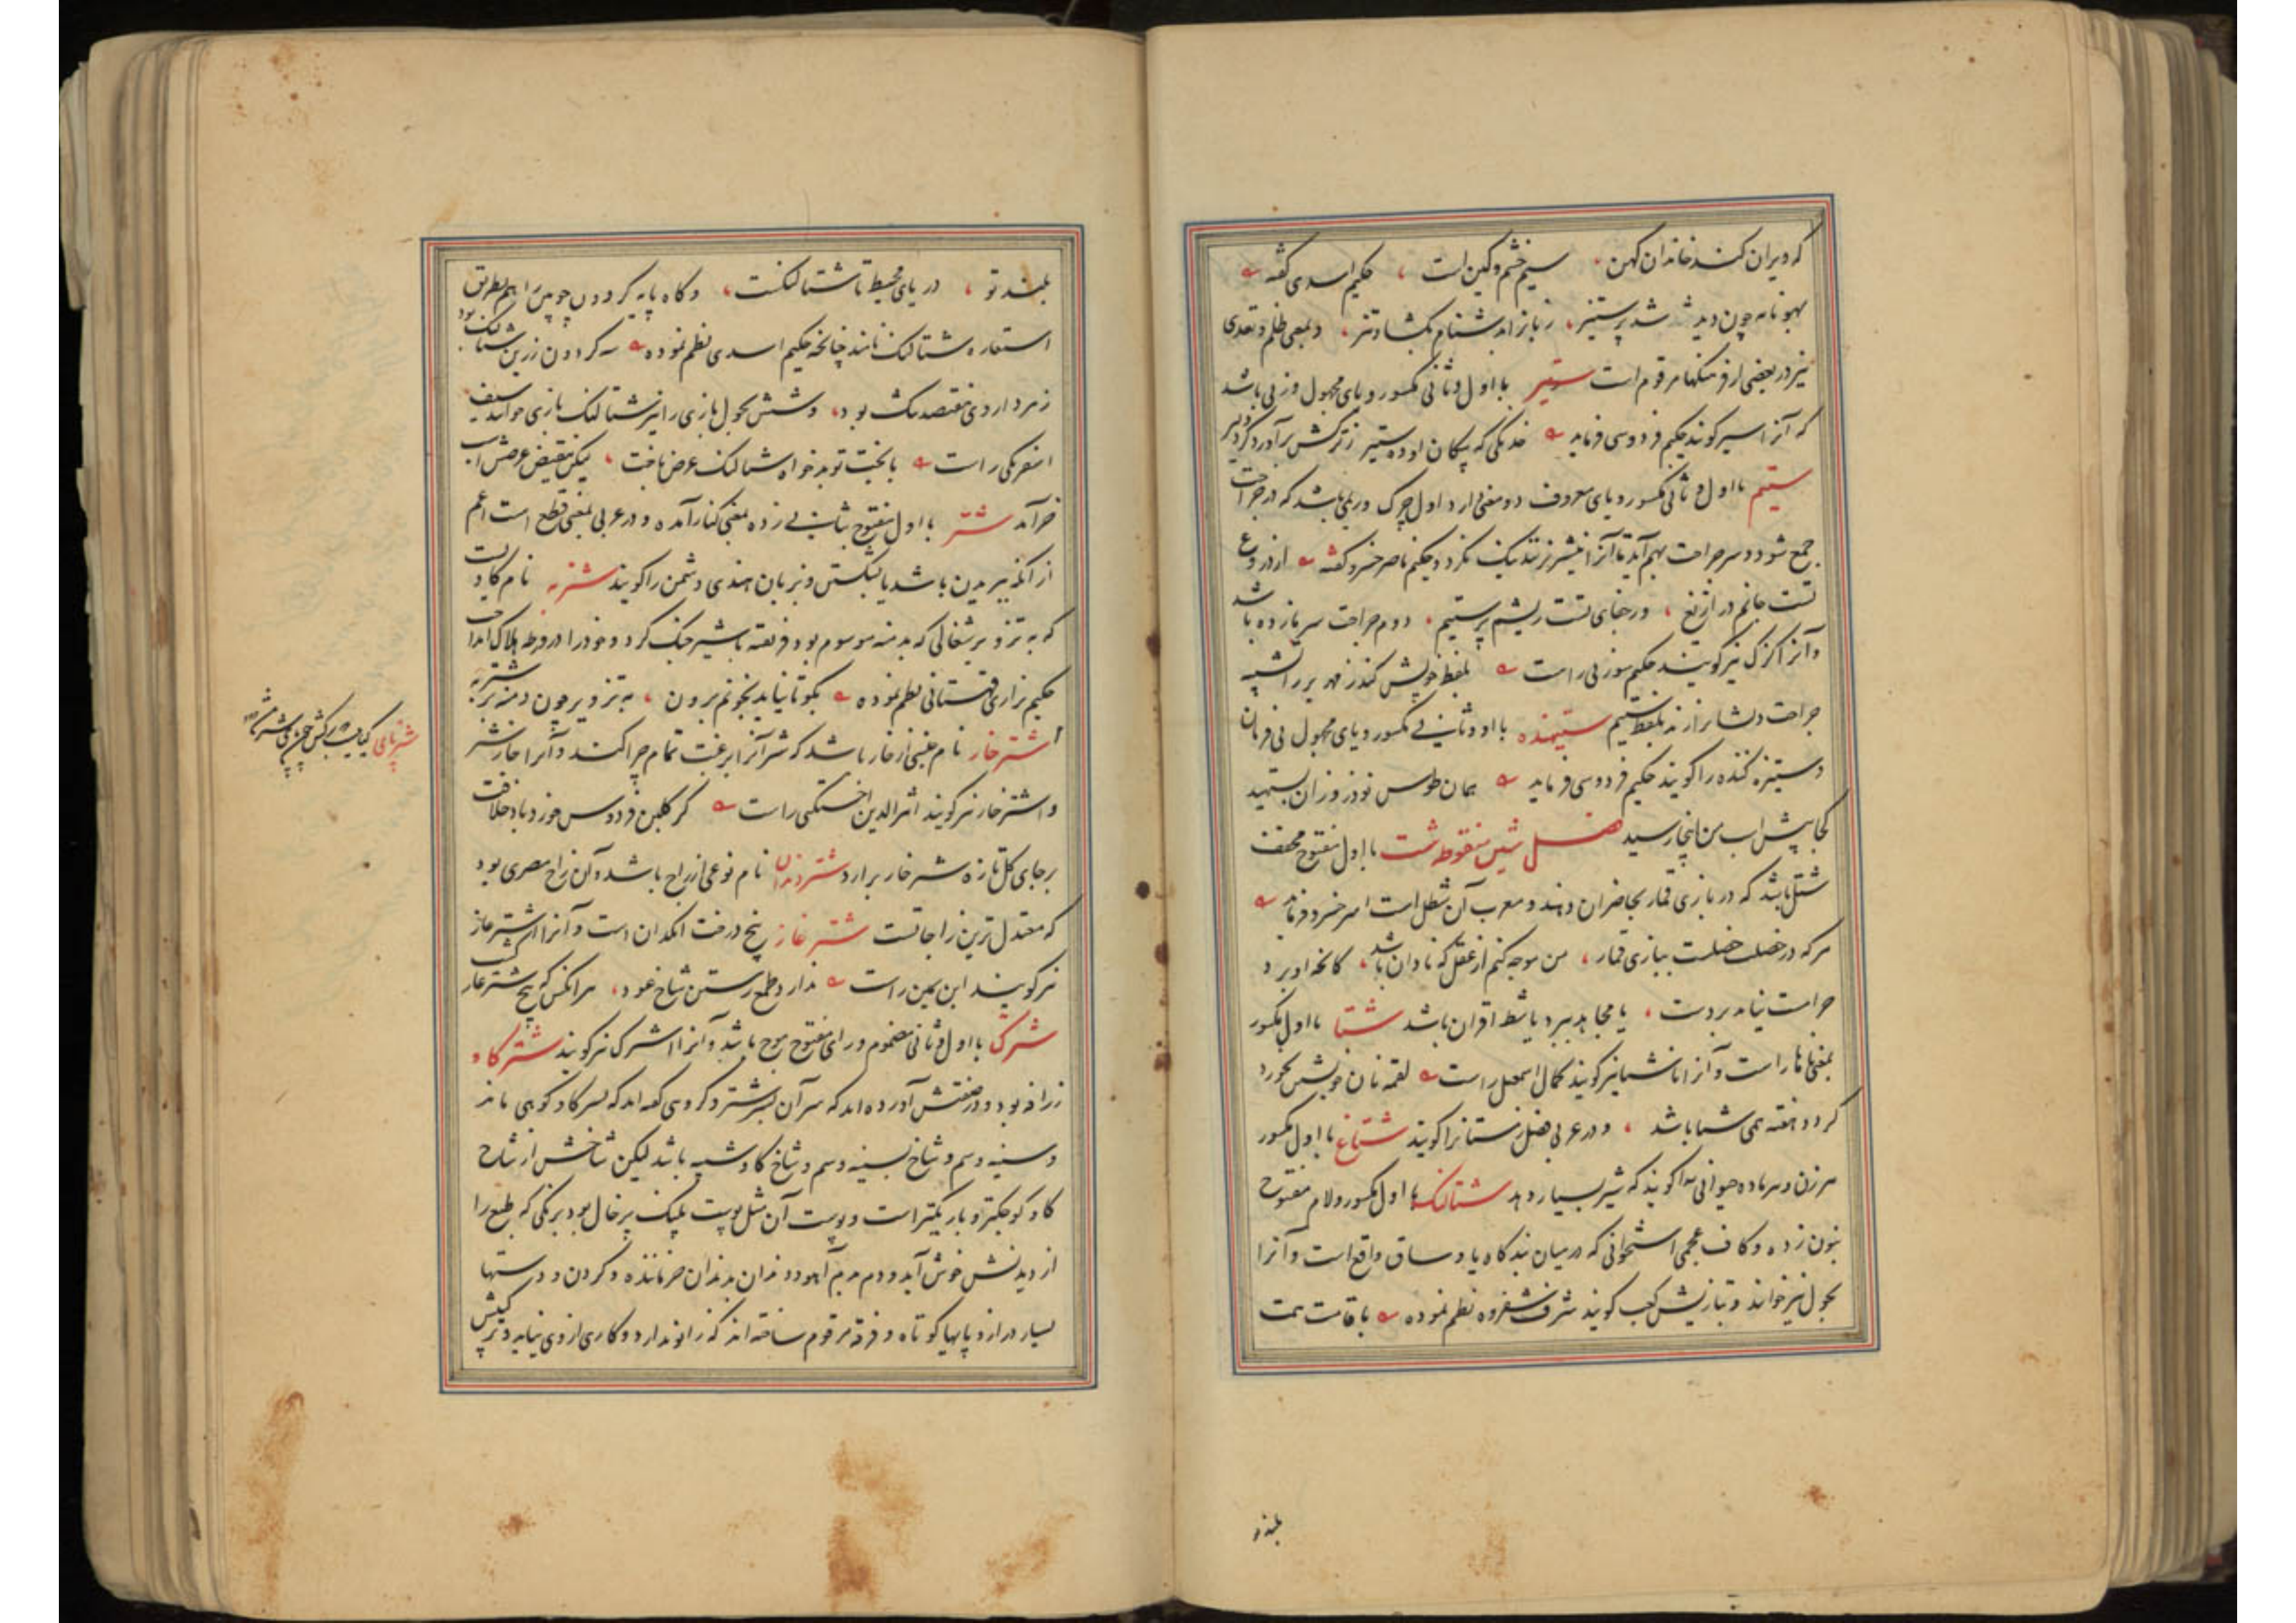 که ویران کند خاندان کهن سیم خشم و کین است حکیم اسدی گفته
چون دید شد پرستیز زبانرا بدشنام بگشاد تیز و بمعنی ظلم و تعدی
نیز در بعضی از فرهنگها مرقوم است ستیر با اول و ثانی مکسور و یای مجهول وزنی باشد
که آنرا سیر گویند حکیم فردوسی فرماید خدنگی که پیکان او ده ستیر ز ترکش برآورد گرد دلیر
ستیم با اول و ثانی مکسور و یای معروف دو معنی دارد اول چرک و ریمی باشد که در جراحت
جمع شود و سر جراحت بهم آید تا آنرا نیشتر نزنند نیک نگردد حکیم ناصر خسرو گفته از دروغ
تست جانم در ازیغ وز جفای تست ریشم پرستیم دوم جراحت سر باز ده باشد
و آنرا کزک نیز گویند حکیم سوزنی راست بلفظ خویش
جراحت بلفظ ستیم ستیهنده با اول و ثانی مکسور و یای مجهول نافرمان
و ستیزه کننده را گویند حکیم فردوسی فرماید همان طوس نوذر دران بستهید
کجا پیش اسب من اینجا رسید فصل شین منقوطه شت با اول مفتوح مخفف
شتل باشد که در بازی قمار بحاضران دهند و معرب آن شطل است امیر خسرو فرماید
هر که در خصلت ببازی قمار من موجه کنم از عقل که نادان باشد کانچه او برد
حرامست نیاید بردست یا مجاهد ببرد یا شط اقران باشد شتا با اول مکسور
بمعنی ناهار است و آنرا ناشتا نیز گویند کمال اسمعیل راست لقمه نان خویش نخورد
گر دو هفته همی شتا باشد و در عربی فصل زمستانرا گویند شتاغ با اول مکسور
هر زن و هر ماده حیوانی را گویند که شیر بسیار دهد شتالنگ با اول مکسور و لام مفتوح
بنون زده و کاف عجمی استخوانی که در میان بندگاه پا و ساق واقع است و آنرا
بجول نیز خوانند و بتازیش کعب گویند شرف شفروه نظم نموده با قامت همت
بلند تو
بلند تو دریای محیط تا شتالنگست و گاه پایه گردون چوبین را هم بطریق
استعاره شتالنگ نامند چنانچه حکیم اسدی نظم نموده گردون زرین شتالنگ بود
زمرد دارد وی هفتصد سنگ بود و شش بجول بازی را نیز شتالنگ بازی خوانند سیف
اسفرنگی راست با بخت تو بدخواه شتالنگ عرض باخت لیکن نقیض غرضش اسب
خر آمد شتر با اول مفتوح بثانی زده بمعنی کنار آمده و در عربی بمعنی قطع است اعم
از آنکه ببریدن باشد یا بشکستن و بزبان هندی دشمن را گویند شتربه نام گاویست
که به تزویر شغالی که بدمنه موسوم بود فریفته با شیر جنگ کرد و خود را در ورطه هلاک انداخت
حکیم نزاری قهستانی نظم نموده بگو تا نیاید بخونم برون به تزویر چون دمنه بر شتربه
اشترخار نام جنسی از خار باشد که شتر آنرا برغبت تمام چرا کند و آنرا خار شتر
و اشترخار نیز گویند اثیرالدین اخسیکتی راست گر گلبن فردوس خورد باد خلافت
بر جای گل تازه شترخار برآرد شتر دندان نام نوعی از زاج باشد و آن زاج مصری بود
که معتدل ترین زاجهاست شترغاز بیخ درخت انگدان است و آنرا اشترغاز
نیز گویند ابن یمین راست ندارد طمع رستن شاخ عود هر آنکس که بیخ شترغاز کشت
شترک با اول و ثانی مضموم و رای مفتوح موج باشد و آنرا اشترک نیز گویند شترگاو
زرافه بود و در صفتش آورده اند که سر آن بسر شتر و گروهی گفته اند که بسر گاو کوهی ماند
و سینه و سم و شاخ بسینه و سم و شاخ گاو شبیه باشد لیکن شاخش از شاخ
گاو کوچکتر و باریکتر است و پوست آن مثل پوست پلنگ پر خال بود برنگی که طبع را
از دیدنش خوش آید و دم بدم آهو و دندان بدندان خر ماننده و گردن و دستها
بسیار دراز و پایها کوتاه و فرقه مرقوم ساخته اند که زانو ندارد و کاری از وی نیاید و ترکیبش
شترنای